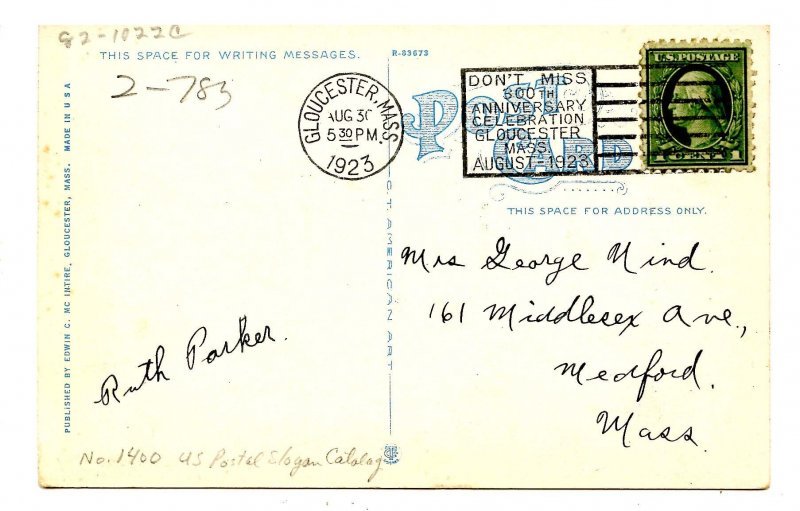 82-1022C
THIS SPACE FOR WRITING MESSAGES.
R-83673
2-783
GLOUCESTER, MASS.
AUG 30
5 30 PM
1923
DON'T MISS
300TH
ANNIVERSARY
CELEBRATION
GLOUCESTER
MASS.
AUGUST-1923
U.S. POSTAGE
1 CENT 1
Post
Card
THIS SPACE FOR ADDRESS ONLY.
Mrs George Hind.
161 Middlesex Ave.,
Medford.
Mass.
Ruth Parker.
No. 1400 US Postal Slogan Catalog
PUBLISHED BY EDWIN C. MC INTIRE, GLOUCESTER, MASS. MADE IN U S A
C.T. AMERICAN ART